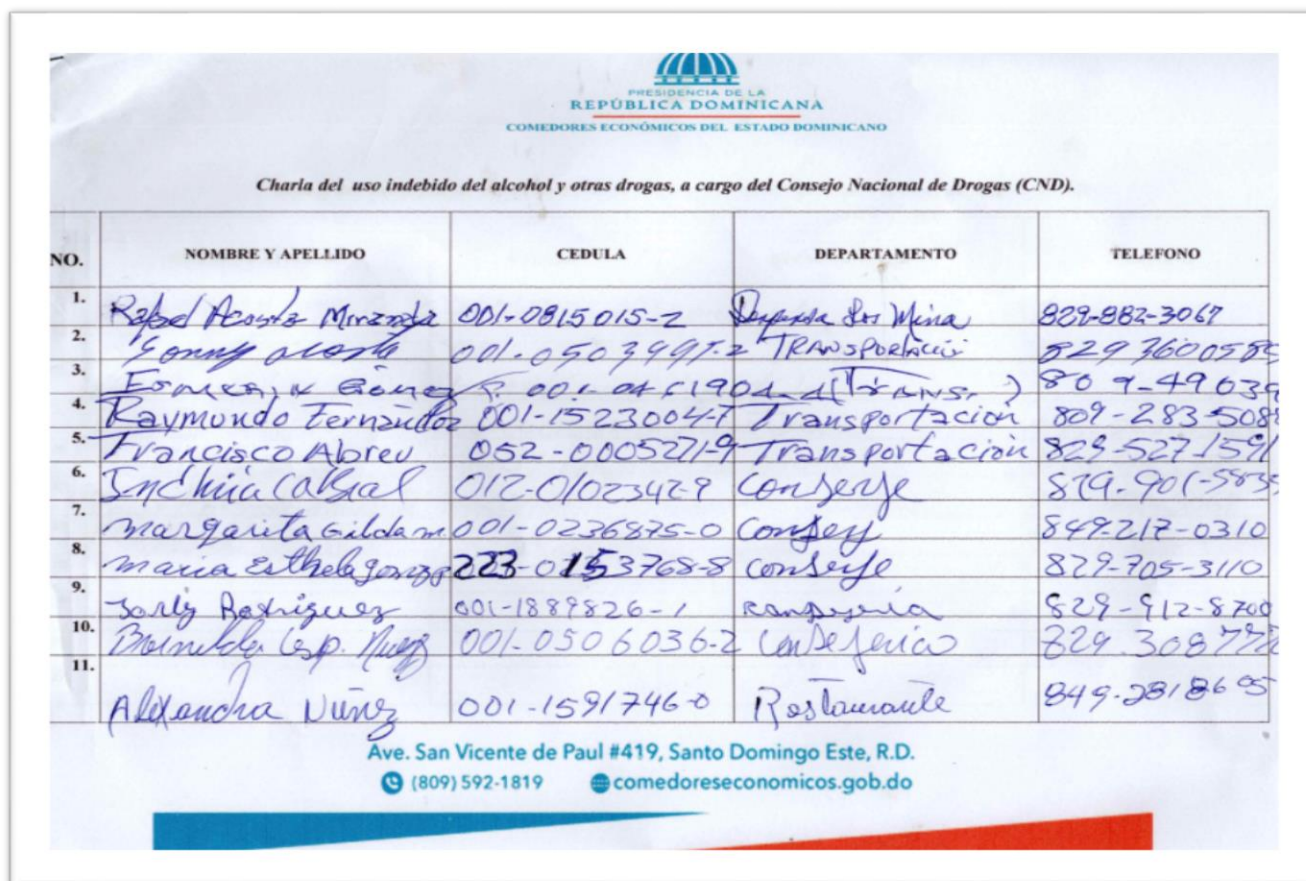 PRESIDENCIA DE LA
REPÚBLICA DOMINICANA
COMEDORES ECONÓMICOS DEL ESTADO DOMINICANO
Charla del uso indebido del alcohol y otras drogas, a cargo del Consejo Nacional de Drogas (CND).
NO. NOMBRE Y APELLIDO CEDULA DEPARTAMENTO TELEFONO
1. Rafael Acosta Miranda 001-0815015-2 Los Mina 829-882-3067
2. 001-0503997-2 TRANSPORTACIÓN 829 3600585
3. Gómez (TRANS.) 809-49039
4. Raymundo Fernández 001-1523004-7 Transportación 809-283-5088
5. Francisco Abreu 052-0005271-9 Transportación 829-527-1591
6. Cabral 012-0102342-9 Conserje 829-901-5835
7. Margarita Gilda m. 001-0236875-0 849-217-0310
8. maria Esthela 223-0153768-8 conserje 829-705-3110
9. Rodriguez 001-1889826-1 829-912-8700
10. 001-0506036-2 829.308777
11. Alexandra Núñez 001-1591746-0 Restaurante 849-2818605
Ave. San Vicente de Paul #419, Santo Domingo Este, R.D.
(809) 592-1819 comedoreseconomicos.gob.do